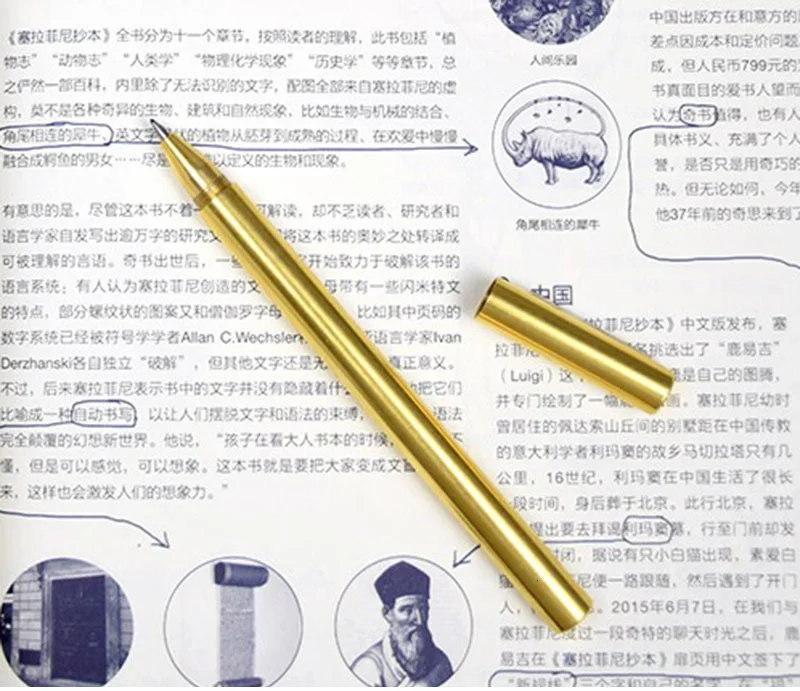 《塞拉菲尼抄本》全书分为十一个章节，按照读者的理解，此书包括“植
物志”“动物志”“人类学”“物理化学现象”“历史学”等等章节，总
之俨然一部百科，内里除了无法识别的文字，配图全部来自塞拉菲尼的虚
构，莫不是各种奇异的生物、建筑和自然现象，比如生物与机械的结合、
角尾相连的犀牛、英文字 状的植物从胚芽到成熟的过程、在欢爱中慢慢
融合成鳄鱼的男女……尽是 以定义的生物和现象。
有意思的是，尽管这本书不着 可解读，却不乏读者、研究者和
语言学家自发写出逾万字的研究文 将这本书的奥妙之处转译成
可被理解的言语。奇书出世后，一些 家开始致力于破解该书的
语言系统；有人认为塞拉菲尼创造的文 母带有一些闪米特文
的特点，部分螺纹状的图案又和僧伽罗字母 比如其中页码的
数字系统已经被符号学学者Allan C.Wechsler 语言学家Ivan
Derzhanski各自独立“破解”，但其他文字还是无 真正意义。
不过，后来塞拉菲尼表示书中的文字并没有隐藏着什么 他把它们
比喻成一种自动书写，以让人们摆脱文字和语法的束缚， 语法
完全颠覆的幻想新世界。他说，“孩子在看大人书本的时候， 不
懂，但是可以感觉，可以想象。这本书就是要把大家变成文盲
来，这样也会激发人们的想象力。”
人间乐园
角尾相连的犀牛
中国出版方在和意方的
差点因成本和定价问题
成，但人民币799元的
书真面目的爱书人望而
认为奇书值得，也有人
具体书义、充满了个人
誉，是否只是用奇巧的
热。但无论如何，今年
他37年前的奇思来到了
中国
拉菲尼抄本》中文版发布，塞
拉菲 各挑选出了“鹿易吉”
（Luigi）这 鹿是自己的图腾，
并专门绘制了一幅 画。塞拉菲尼幼时
曾居住的佩达索山丘间的别墅距在中国传教
的意大利学者利玛窦的故乡马切拉塔只有几
公里，16世纪，利玛窦在中国生活了很长
段时间，身后葬于北京。此行北京，塞拉
提出要去拜谒利玛窦墓，行至门前却发
闭，据说有只小白猫出现，素爱白
猫 尼便一路跟随，然后遇到了开门
人， 2015年6月7日，在我们与
塞拉菲尼度过一段奇特的聊天时光之后，鹿
易吉在《塞拉菲尼抄本》扉页用中文签下了